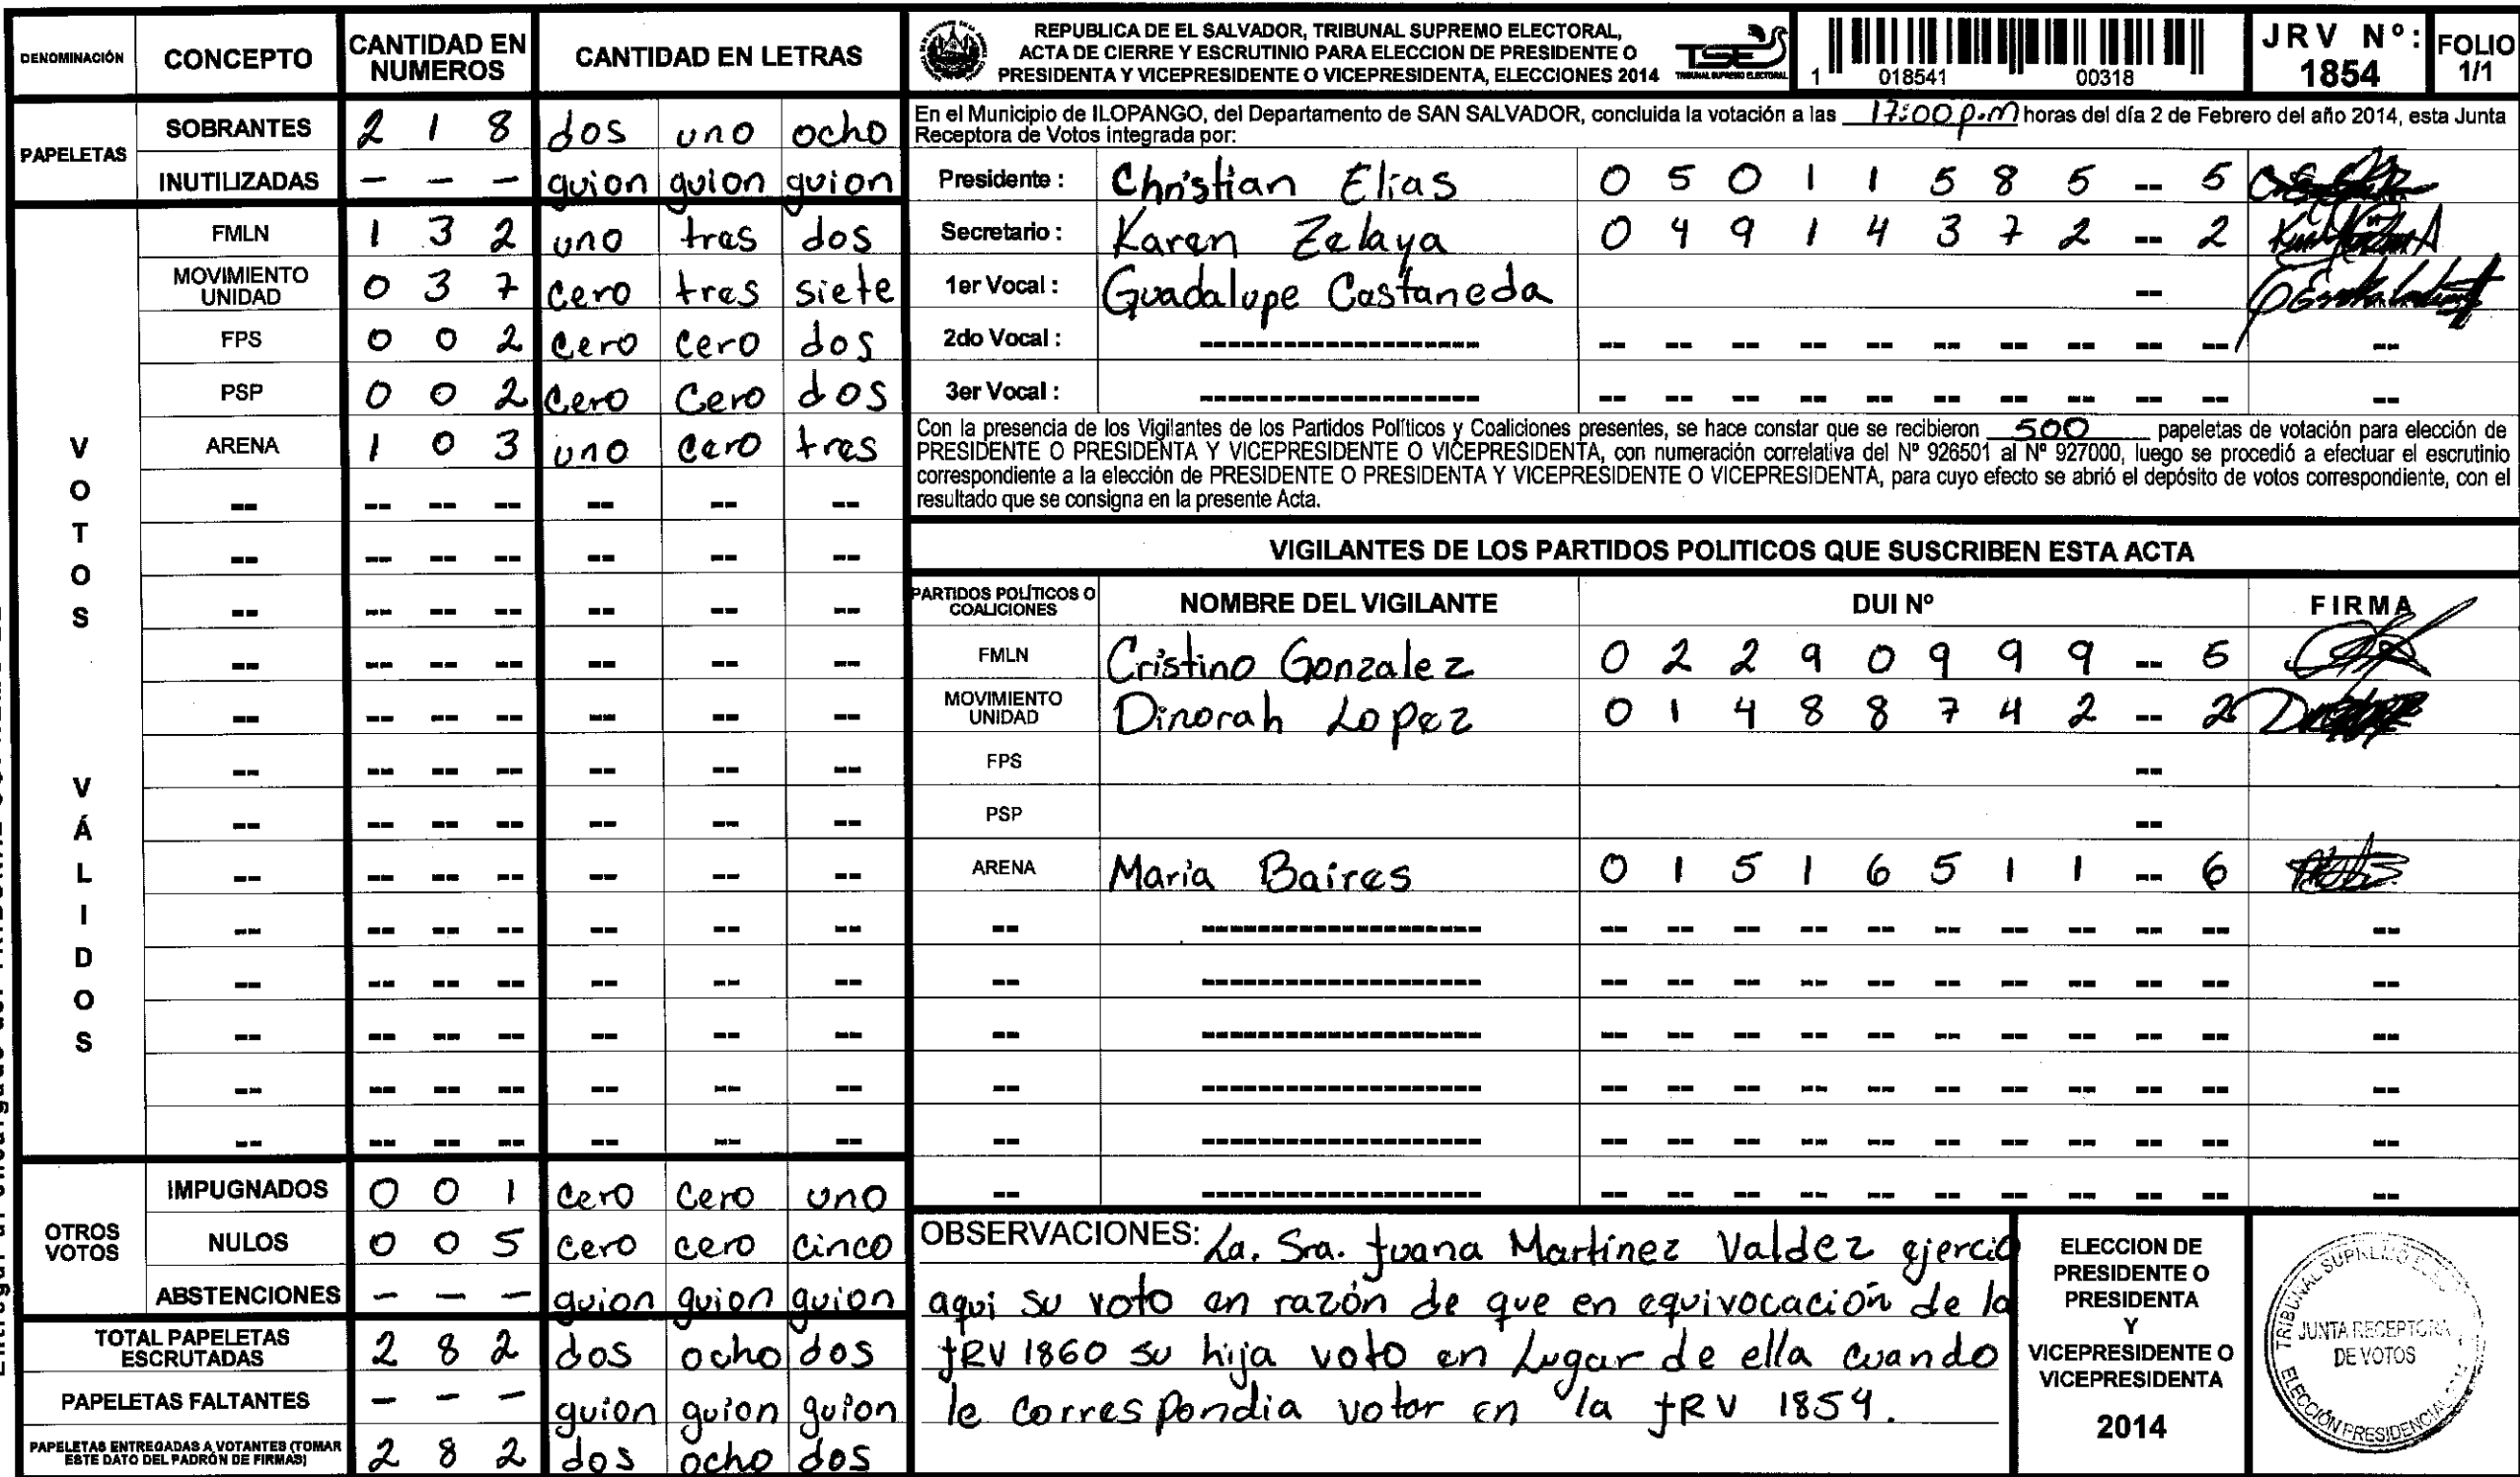 DENOMINACIÓN CONCEPTO CANTIDAD EN NUMEROS CANTIDAD EN LETRAS
PAPELETAS
SOBRANTES 2 1 8 dos uno ocho
INUTILIZADAS - - - guion guion guion
VOTOS VÁLIDOS
FMLN 1 3 2 uno tres dos
MOVIMIENTO UNIDAD 0 3 7 cero tres siete
FPS 0 0 2 cero cero dos
PSP 0 0 2 cero cero dos
ARENA 1 0 3 uno cero tres
OTROS VOTOS
IMPUGNADOS 0 0 1 cero cero uno
NULOS 0 0 5 cero cero cinco
ABSTENCIONES - - - guion guion guion
TOTAL PAPELETAS ESCRUTADAS 2 8 2 dos ocho dos
PAPELETAS FALTANTES - - - guion guion guion
PAPELETAS ENTREGADAS A VOTANTES (TOMAR ESTE DATO DEL PADRÓN DE FIRMAS) 2 8 2 dos ocho dos
REPUBLICA DE EL SALVADOR, TRIBUNAL SUPREMO ELECTORAL,
ACTA DE CIERRE Y ESCRUTINIO PARA ELECCION DE PRESIDENTE O
PRESIDENTA Y VICEPRESIDENTE O VICEPRESIDENTA, ELECCIONES 2014
TSE
TRIBUNAL SUPREMO ELECTORAL
1 018541 00318
JRV Nº: 1854
FOLIO 1/1
En el Municipio de ILOPANGO, del Departamento de SAN SALVADOR, concluida la votación a las 17:00 p.m horas del día 2 de Febrero del año 2014, esta Junta
Receptora de Votos integrada por:
Presidente : Christian Elias 0 5 0 1 1 5 8 5 -- 5
Secretario : Karen Zelaya 0 4 9 1 4 3 7 2 -- 2
1er Vocal : Guadalupe Castaneda --
2do Vocal :
3er Vocal :
Con la presencia de los Vigilantes de los Partidos Políticos y Coaliciones presentes, se hace constar que se recibieron 500 papeletas de votación para elección de
PRESIDENTE O PRESIDENTA Y VICEPRESIDENTE O VICEPRESIDENTA, con numeración correlativa del Nº 926501 al Nº 927000, luego se procedió a efectuar el escrutinio
correspondiente a la elección de PRESIDENTE O PRESIDENTA Y VICEPRESIDENTE O VICEPRESIDENTA, para cuyo efecto se abrió el depósito de votos correspondiente, con el
resultado que se consigna en la presente Acta.
VIGILANTES DE LOS PARTIDOS POLITICOS QUE SUSCRIBEN ESTA ACTA
PARTIDOS POLÍTICOS O COALICIONES NOMBRE DEL VIGILANTE DUI Nº FIRMA
FMLN Cristino Gonzalez 0 2 2 9 0 9 9 9 -- 5
MOVIMIENTO UNIDAD Dinorah Lopez 0 1 4 8 8 7 4 2 -- 2
FPS --
PSP --
ARENA Maria Baires 0 1 5 1 6 5 1 1 -- 6
OBSERVACIONES: La. Sra. Juana Martinez Valdez ejercio
aqui su voto en razón de que en equivocación de la
JRV 1860 su hija voto en Lugar de ella cuando
le correspondia votar en la JRV 1854.
ELECCION DE
PRESIDENTE O
PRESIDENTA
Y
VICEPRESIDENTE O
VICEPRESIDENTA
2014
TRIBUNAL SUPREMO
JUNTA RECEPTORA
DE VOTOS
ELECCIÓN PRESIDENCIAL